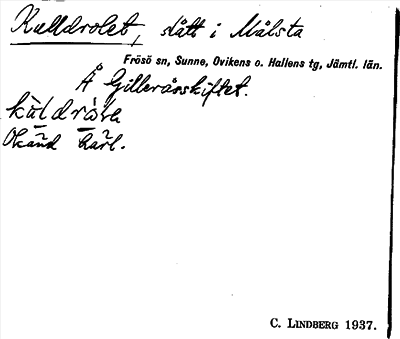 Kalldrolet, slått i Målsta
Frösö sn, Sunne, Ovikens o. Hallens tg, Jämtl. län.
Å Gilleråsskiftet.
Okänd härl.
C. LINDBERG 1937.